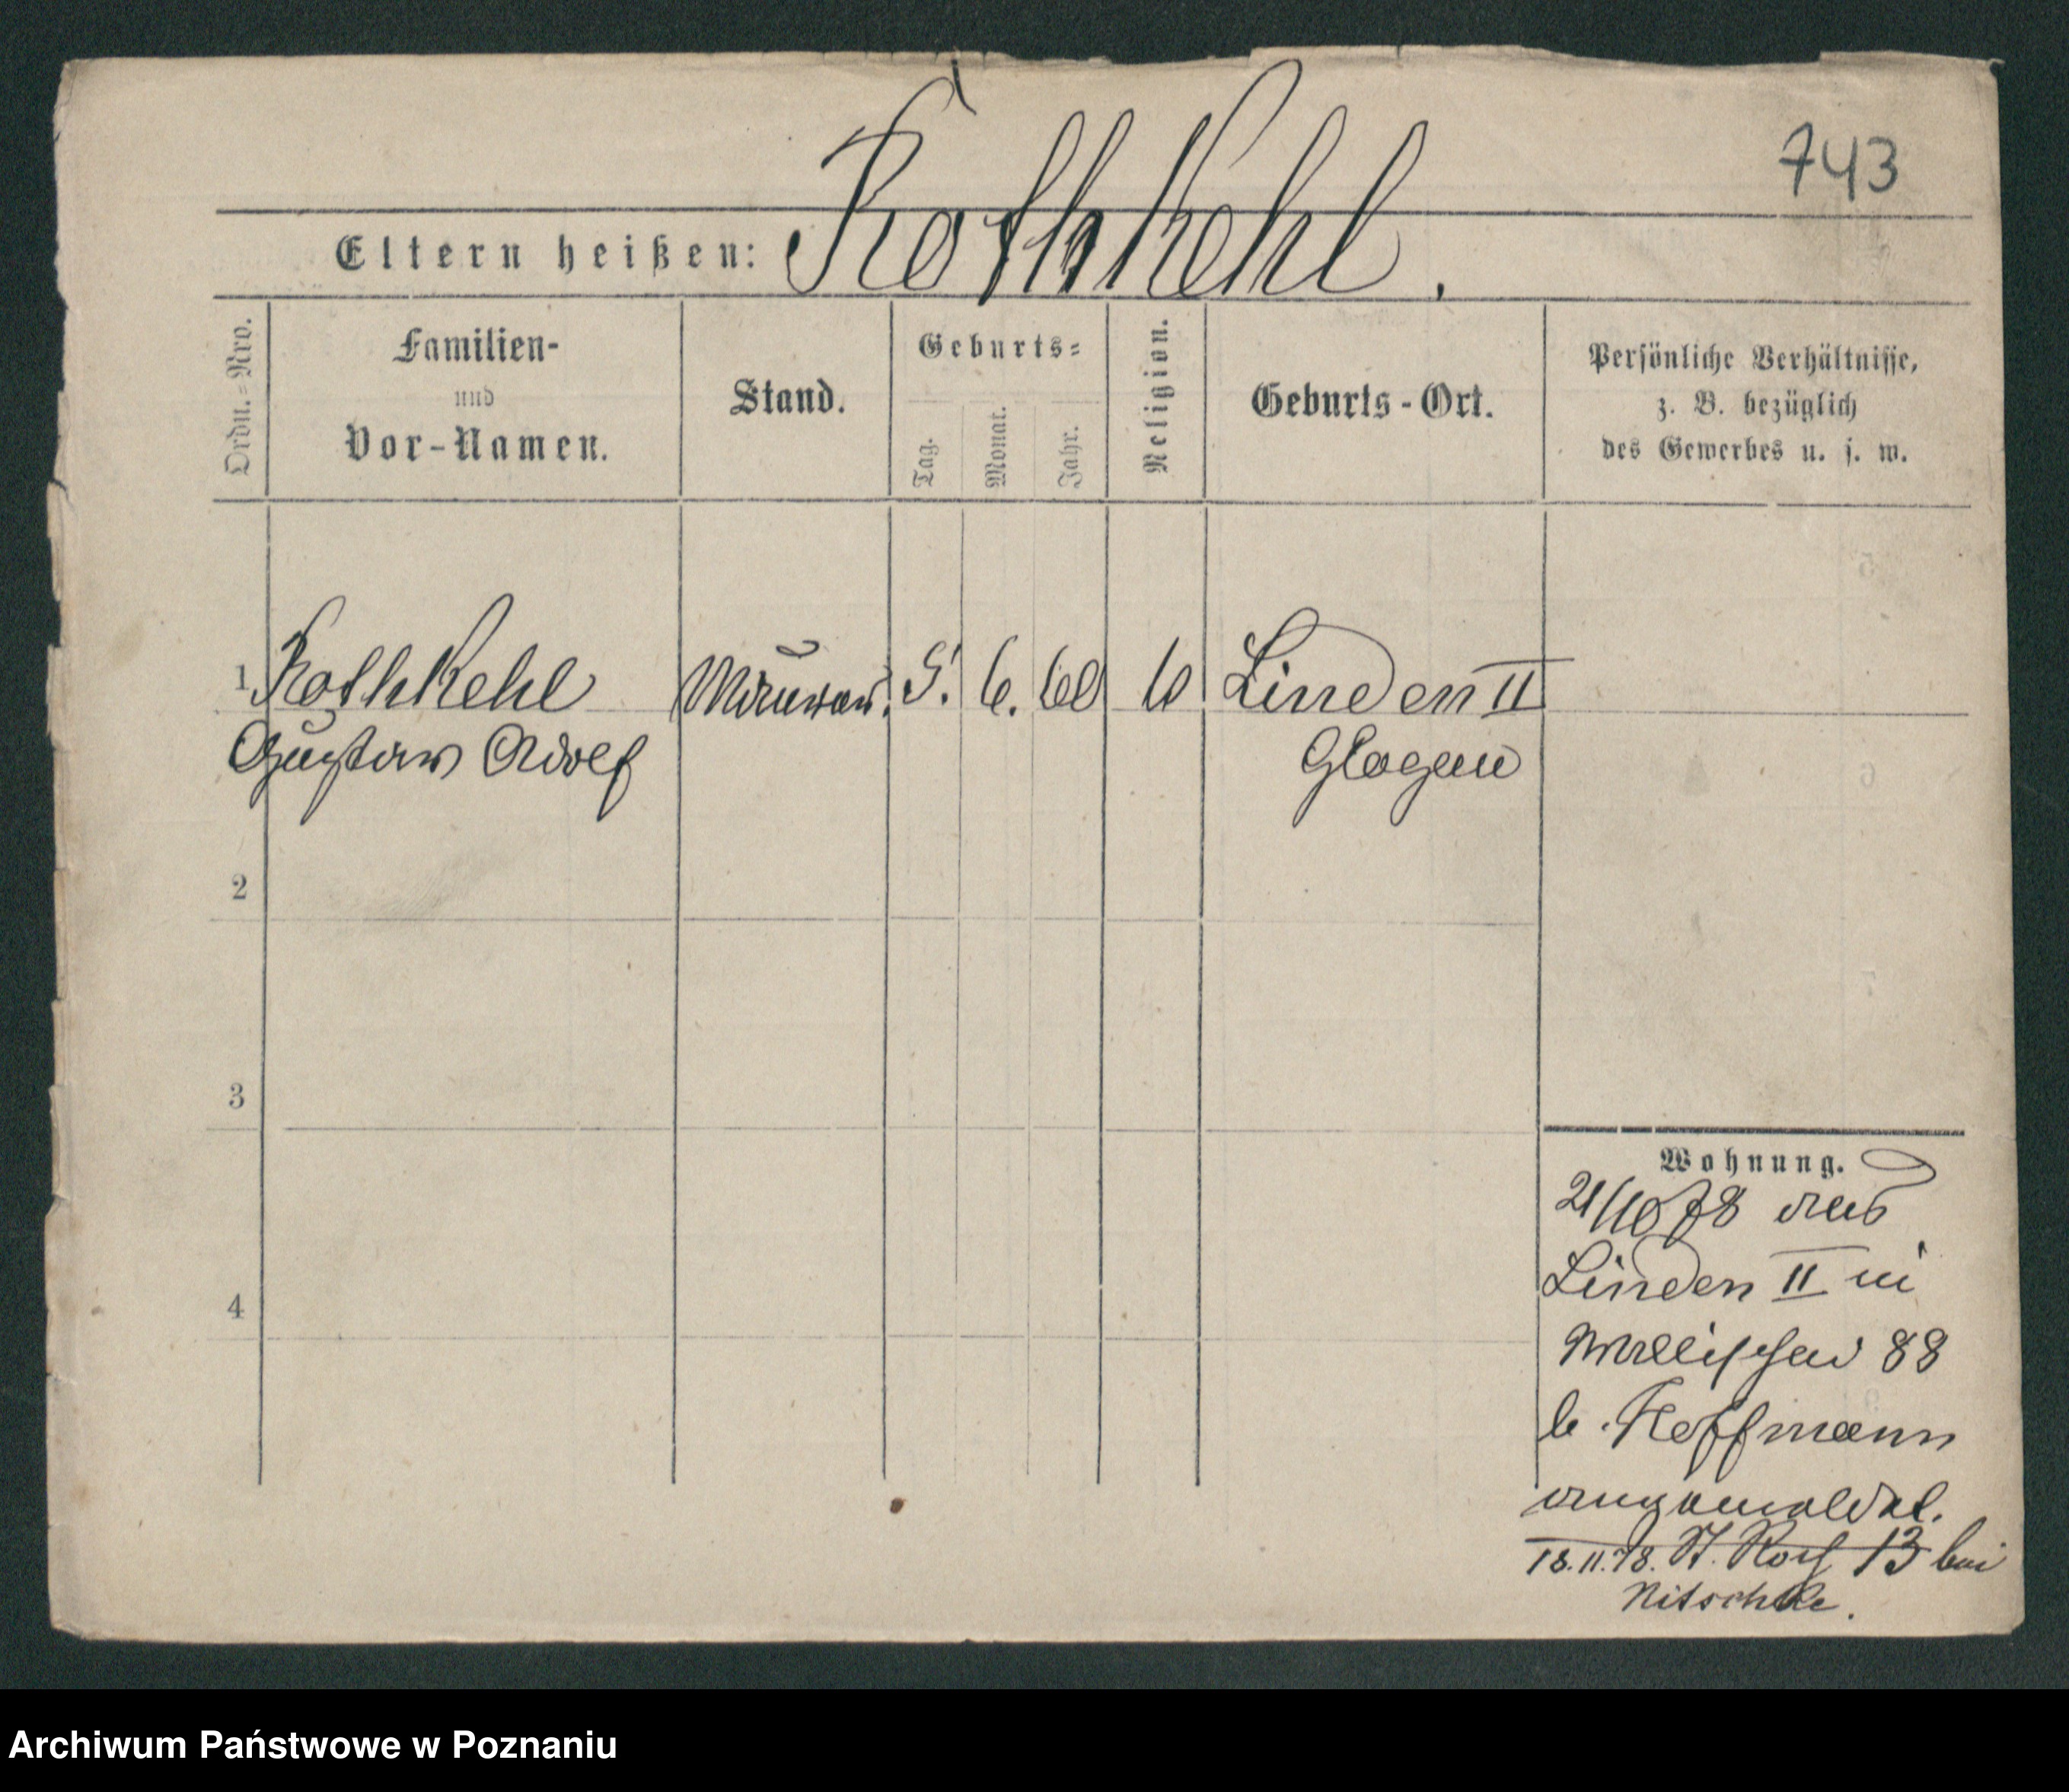 743
Eltern heißen: Rothkehl.
Ordn.-Nro.
Familien-
und
Vor-Namen.
Stand.
Geburts-
Tag.
Monat.
Jahr.
Religion.
Geburts-Ort.
Persönliche Verhältnisse,
z. B. bezüglich
des Gewerbes u. s. w.
1 Rothkehl
Gustav Adolf
5. 6. 60
Linden II
Glogau
2
3
4
Wohnung.
21/10 78 aus
Linden II in
Wallischei 88
b. Hoffmann
angemeldet.
18.11.78. St. Roch 13 bei
Nitschke.
Archiwum Państwowe w Poznaniu